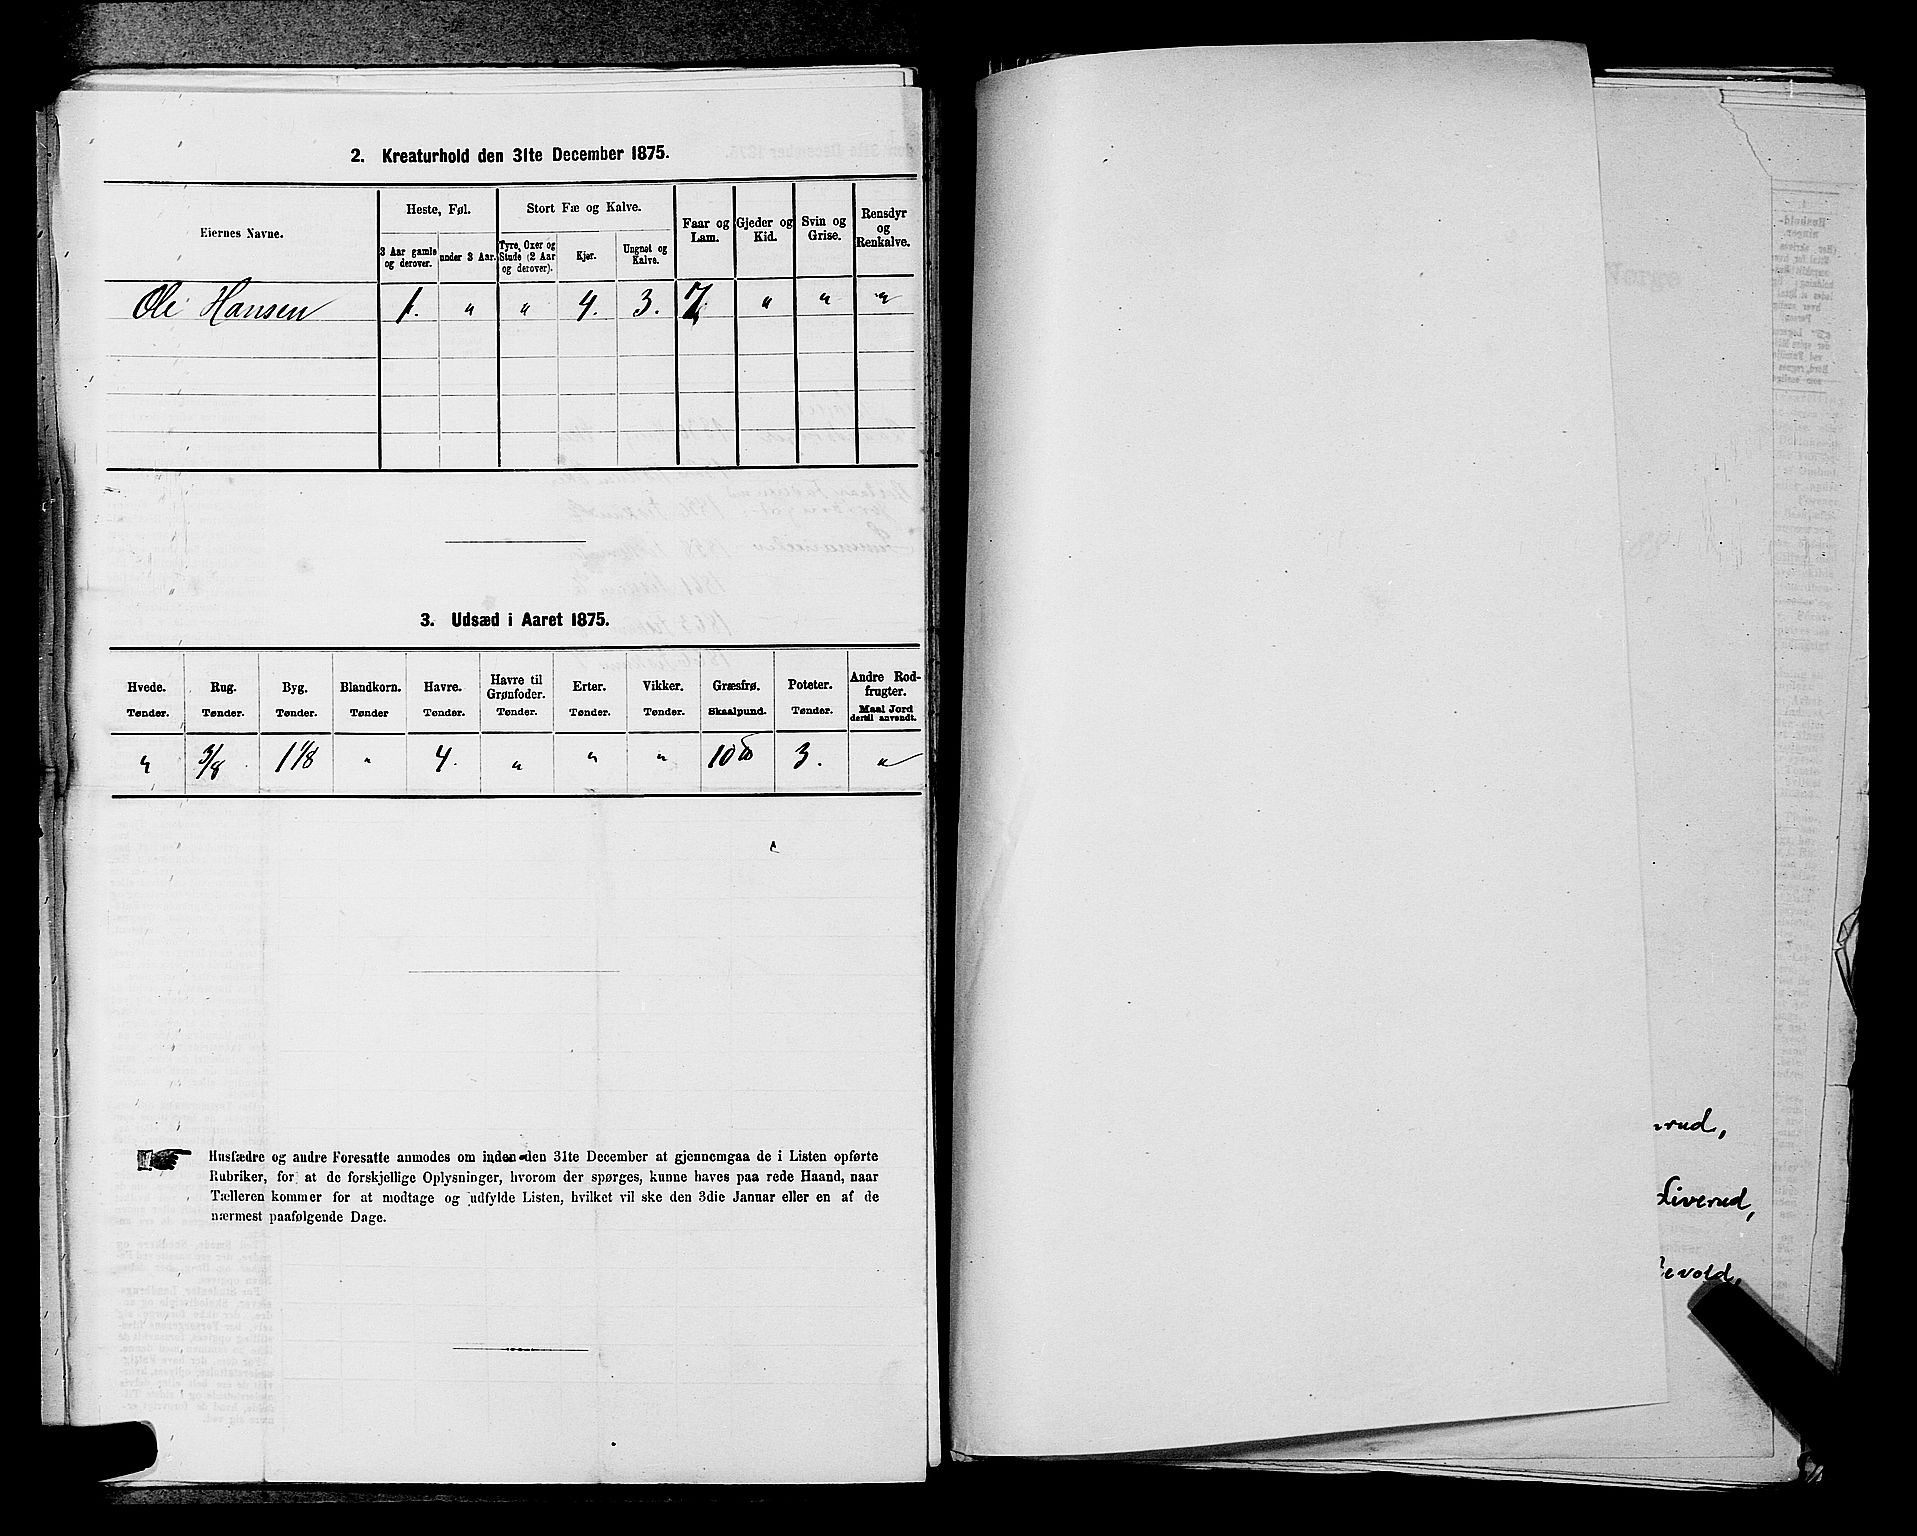 2. Kreaturhold den 31te December 1875.
Eiernes Navne.
Heste, Føl.
Stort Fæ og Kalve.
Faar og Lam.
Gjeder og Kid.
Svin og Grise.
Rensdyr og Renkalve.
3 Aar gamle og derover.
under 3 Aar.
Tyre, Oxer og Stude (2 Aar og derover).
Kjør.
Ungnøt og Kalve.
Ole Hansen 1. " " 4. 3. 7 " " "
3. Udsæd i Aaret 1875.
Hvede. Rug. Byg. Blandkorn. Havre. Havre til Grønfoder. Erter. Vikker. Græsfrø. Poteter. Andre Rodfrugter.
Tønder. Tønder. Tønder. Tønder Tønder. Tønder. Tønder. Tønder. Skaalpund. Tønder. Maal Jord dertil anvendt.
" 3/8 1 1/8 " 4. " " " 10 3. "
Husfædre og andre Foresatte anmodes om inden den 31te December at gjennemgaa de i Listen opførte
Rubriker, for at de forskjellige Oplysninger, hvorom der spørges, kunne haves paa rede Haand, naar
Tælleren kommer for at modtage og udfylde Listen, hvilket vil ske den 3die Januar eller en af de
nærmest paafølgende Dage.
rud,
liverud,
evold,